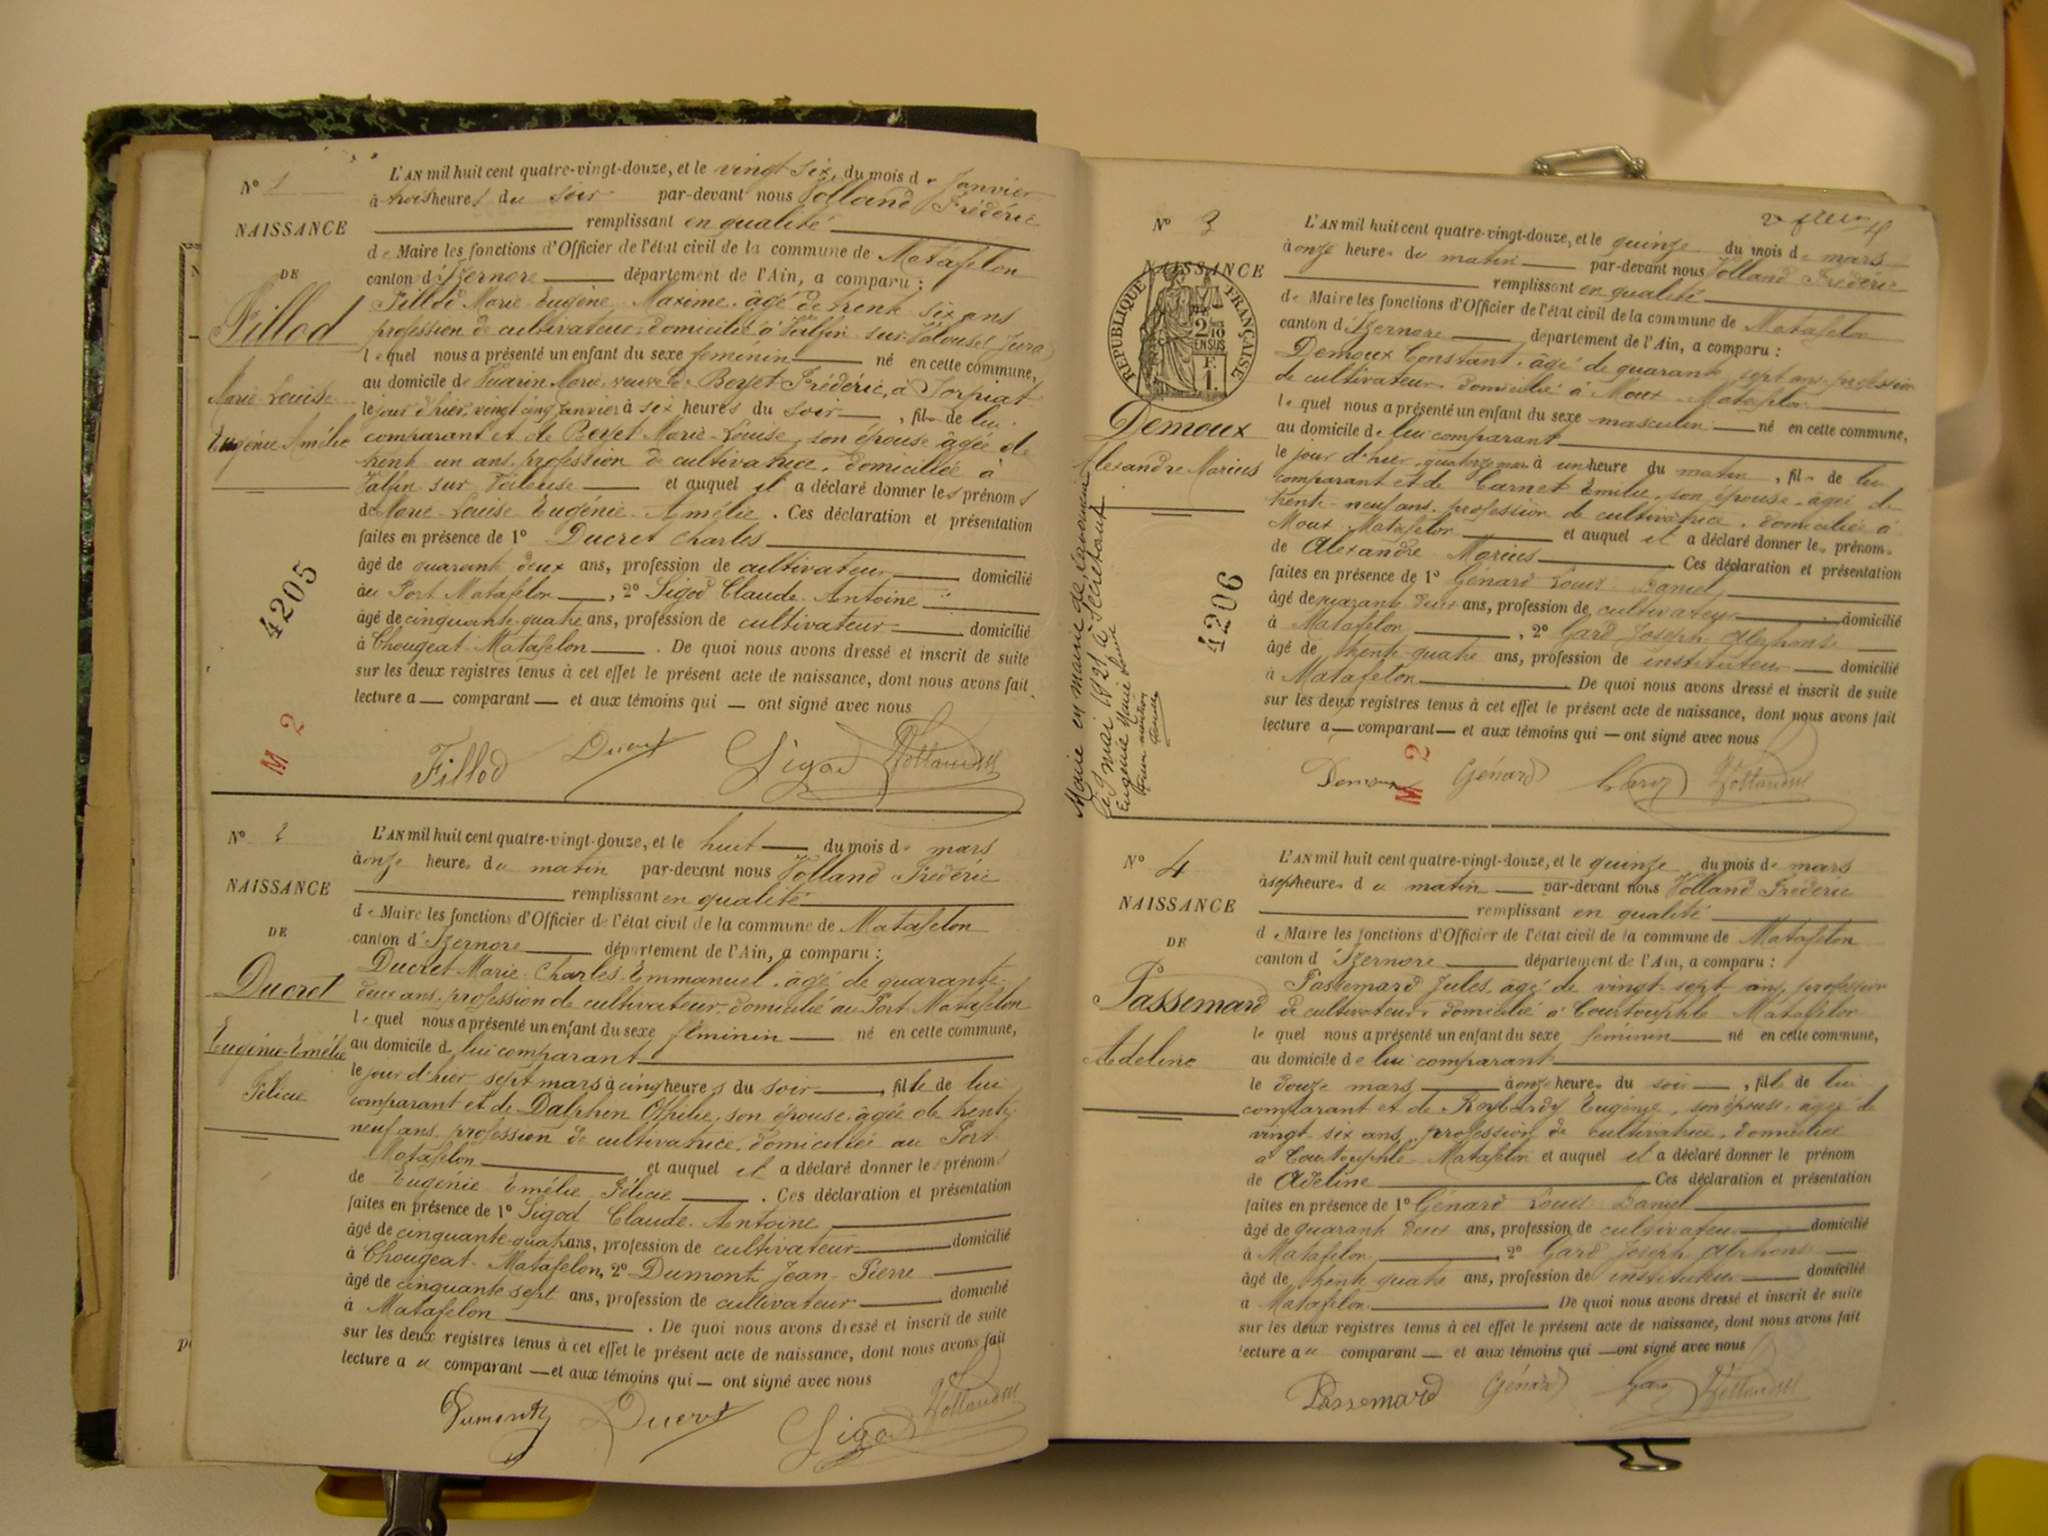 N° 1
NAISSANCE
DE
Fillod
Marie Louise
Eugénie Amélie
4205
M 2
L'AN mil huit cent quatre-vingt-douze, et le vingt six, du mois de Janvier
à trois heures du soir par-devant nous Volland Frédéric
remplissant en qualité
de Maire les fonctions d'Officier de l'état civil de la commune de Matafelon
canton d'Izernore département de l'Ain, a comparu :
Fillod Marie Eugène Maxime, âgé de trente six ans
profession de cultivateur, domicilié à Valfin sur Valouse, Jura
lequel nous a présenté un enfant du sexe féminin né en cette commune,
au domicile de Tuarin Marie, veuve de Boyet Frédéric, à Corpiat
le jour d'hier, vingt cinq Janvier à six heures du soir, fille de lui
comparant et de Boyet Marie-Louise, son épouse âgée de
trente un ans, profession de cultivatrice, domiciliée à
Valfin sur Valouse et auquel il a déclaré donner les prénoms
de Marie-Louise Eugénie Amélie. Ces déclaration et présentation
faites en présence de 1° Ducret Charles
âgé de quarante deux ans, profession de cultivateur domicilié
au Port Matafelon, 2° Sigod Claude-Antoine
âgé de cinquante-quatre ans, profession de cultivateur domicilié
à Chougeat-Matafelon. De quoi nous avons dressé et inscrit de suite
sur les deux registres tenus à cet effet le présent acte de naissance, dont nous avons fait
lecture a comparant et aux témoins qui ont signé avec nous
Fillod Ducret Sigod Vollandfc
N° 2
NAISSANCE
DE
Ducret
Eugénie-Emélie
Félicie
L'AN mil huit cent quatre-vingt-douze, et le huit du mois de mars
à onze heures du matin par-devant nous Volland Frédéric
remplissant en qualité
de Maire les fonctions d'Officier de l'état civil de la commune de Matafelon
canton d'Izernore département de l'Ain, a comparu :
Ducret Marie-Charles-Emmanuel, âgé de quarante
deux ans, profession de cultivateur, domicilié au Port-Matafelon
lequel nous a présenté un enfant du sexe féminin né en cette commune,
au domicile de lui comparant
le jour d'hier, sept mars à cinq heures du soir, fille de lui
comparant et de Dalphin Othilie, son épouse, âgée de trente
neuf ans, profession de cultivatrice, domiciliée au Port
Matafelon et auquel il a déclaré donner les prénoms
de Eugénie-Emélie Félicie. Ces déclaration et présentation
faites en présence de 1° Sigod Claude-Antoine
âgé de cinquante-quatre ans, profession de cultivateur domicilié
à Chougeat-Matafelon, 2° Dumont Jean-Pierre
âgé de cinquante sept ans, profession de cultivateur domicilié
à Matafelon. De quoi nous avons dressé et inscrit de suite
sur les deux registres tenus à cet effet le présent acte de naissance, dont nous avons fait
lecture au comparant et aux témoins qui ont signé avec nous
Dumont Ducret Sigod
N° 3
NAISSANCE
RÉPUBLIQUE FRANÇAISE
2/10 EN SUS
F. 1.
Demoux
Alexandre Marius
4206
M 2
Marié en mairie de
le 9 mai 1921
Eugénie Marie
L'AN mil huit cent quatre-vingt-douze, et le quinze du mois de mars
à onze heures du matin par-devant nous Volland Frédéric
remplissant en qualité
de Maire les fonctions d'Officier de l'état civil de la commune de Matafelon
canton d'Izernore département de l'Ain, a comparu :
Demoux Constant, âgé de quarante sept ans, profession
de cultivateur, domicilié à Moux-Matafelon
lequel nous a présenté un enfant du sexe masculin né en cette commune,
au domicile de lui comparant
le jour d'hier, quatorze mars à une heure du matin, fils de lui
comparant et de Carnet Emilie, son épouse, âgée de
trente-neuf ans, profession de cultivatrice, domiciliée à
Moux-Matafelon et auquel il a déclaré donner les prénoms
de Alexandre Marius Ces déclaration et présentation
faites en présence de 1° Génard Louis Daniel
âgé de quarante deux ans, profession de cultivateur domicilié
à Matafelon, 2° Gard Joseph Alphonse
âgé de trente-quatre ans, profession de instituteur domicilié
à Matafelon De quoi nous avons dressé et inscrit de suite
sur les deux registres tenus à cet effet le présent acte de naissance, dont nous avons fait
lecture a comparant et aux témoins qui ont signé avec nous
Demoux Génard Gard
N° 4
NAISSANCE
DE
Passemard
Adeline
L'AN mil huit cent quatre-vingt-douze, et le quinze du mois de mars
à sept heures du matin par-devant nous Volland Frédéric
remplissant en qualité
de Maire les fonctions d'Officier de l'état civil de la commune de Matafelon
canton d'Izernore département de l'Ain, a comparu :
Passemard Jules, âgé de vingt-sept ans, profession
de cultivateur, domicilié à Courtouphle Matafelon
lequel nous a présenté un enfant du sexe féminin né en cette commune,
au domicile de lui comparant
le douze mars à onze heures du soir, fille de lui
comparant et de Eugénie, son épouse, âgée de
vingt-six ans, profession de cultivatrice, domiciliée
à Courtouphle-Matafelon et auquel il a déclaré donner le prénom
de Adeline Ces déclaration et présentation
faites en présence de 1° Génard Louis Daniel
âgé de quarante deux ans, profession de cultivateur domicilié
à Matafelon, 2° Gard Joseph Alphonse
âgé de trente quatre ans, profession de instituteur domicilié
à Matafelon. De quoi nous avons dressé et inscrit de suite
sur les deux registres tenus à cet effet le présent acte de naissance, dont nous avons fait
lecture au comparant et aux témoins qui ont signé avec nous
Passemard Génard Gard